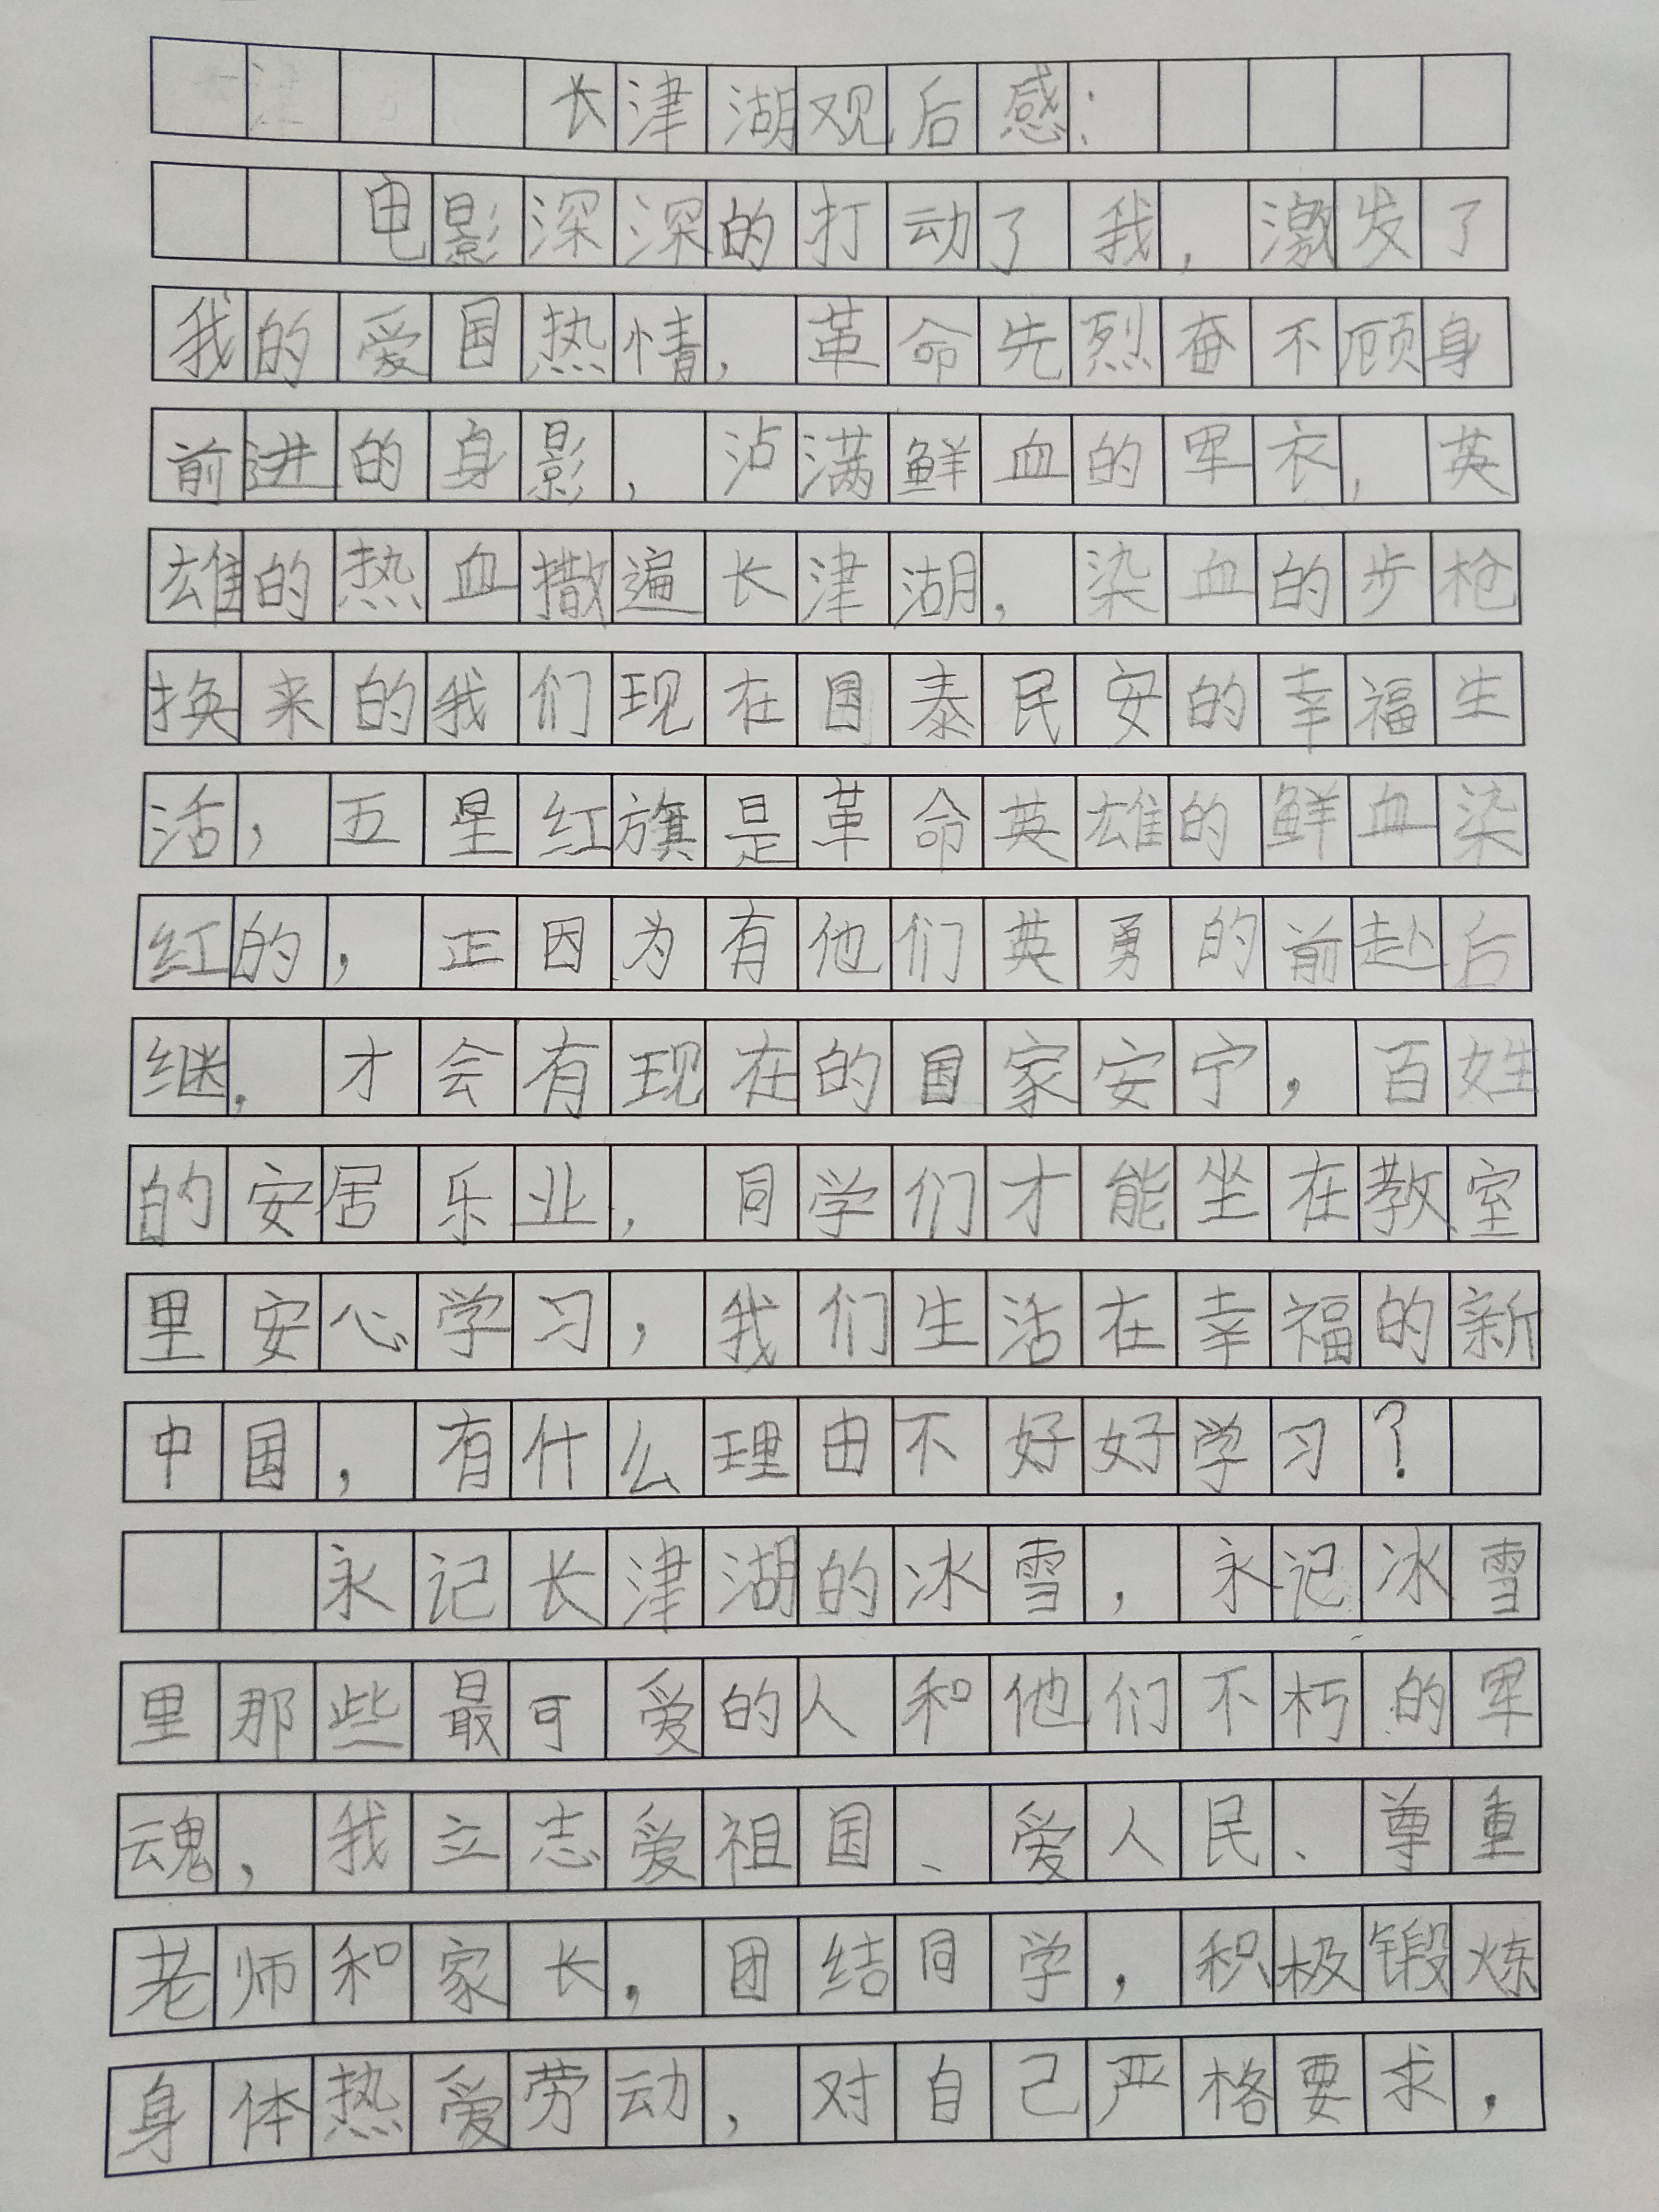 长津湖观后感：
电影深深的打动了我，激发了
我的爱国热情，革命先烈奋不顾身
前进的身影，沾满鲜血的军衣，英
雄的热血撒遍长津湖，染血的步枪
换来的我们现在国泰民安的幸福生
活，五星红旗是革命英雄的鲜血染
红的，正因为有他们英勇的前赴后
继，才会有现在的国家安宁，百姓
的安居乐业，同学们才能坐在教室
里安心学习，我们生活在幸福的新
中国，有什么理由不好好学习？
永记长津湖的冰雪，永记冰雪
里那些最可爱的人和他们不朽的军
魂，我立志爱祖国、爱人民、尊重
老师和家长，团结同学，积极锻炼
身体热爱劳动，对自己严格要求，